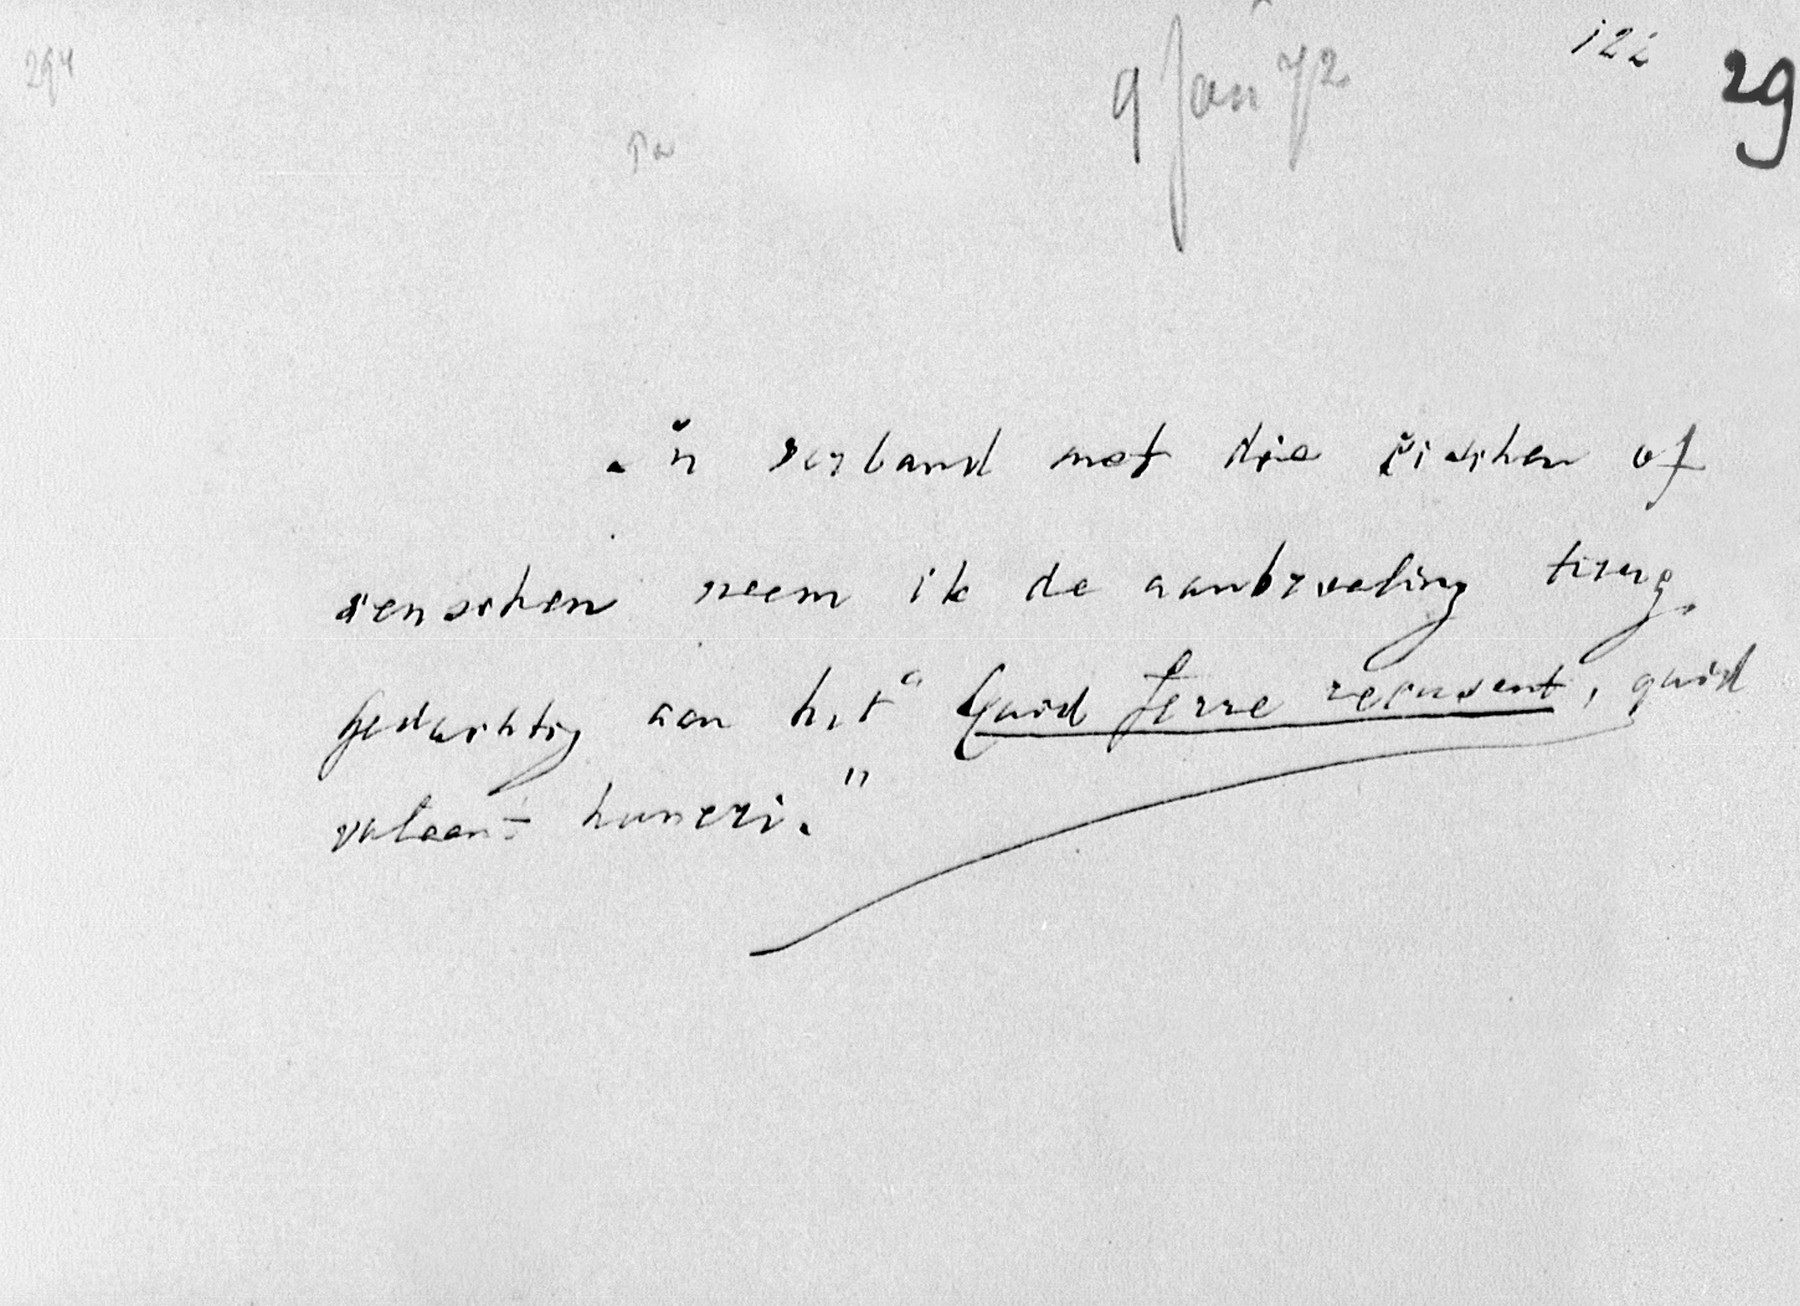 294
122 29
9 Jan 72
in verband met die eischen of
wenschen neem ik de aanbeveling terug,
gedachtig aan het "Quid ferre recusent, quid
valeant humeri."